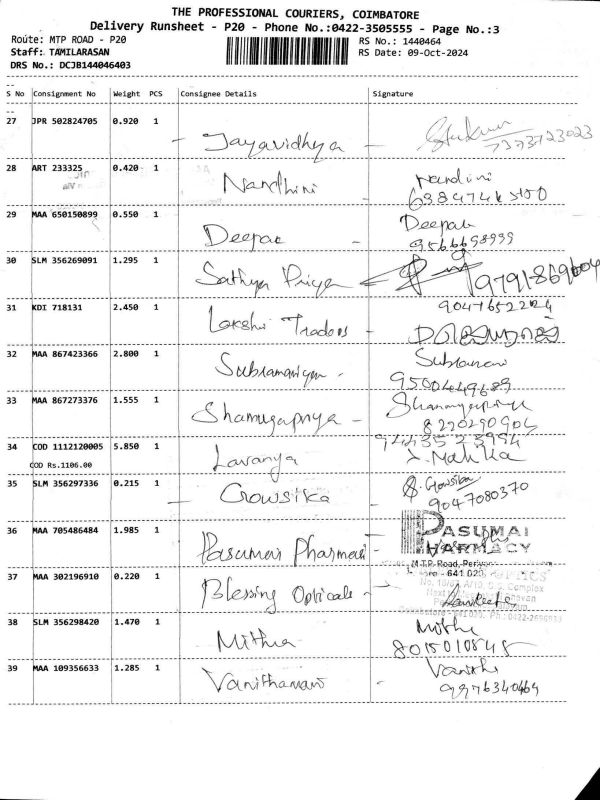 THE PROFESSIONAL COURIERS, COIMBATORE
Delivery Runsheet - P20 - Phone No.:0422-3505555 - Page No.:3
Route: MTP ROAD - P20
RS No.: 1440464
Staff: TAMILARASAN
RS Date: 09-Oct-2024
DRS No.: DCJB144046403
S No Consignment No Weight PCS Consignee Details Signature
27 JPR 502824705 0.920 1
Jayavidhya
7373723023
28 ART 233325 0.420 1
Nandhini
Nandini
29 MAA 650150899 0.550 1
Deepak
Deepak
9566698999
30 SLM 356269091 1.295 1
Sathya Priya
9791869604
31 KDI 718131 2.450 1
9047652224
Lakshi Traders
32 MAA 867423366 2.800 1
Subramaniyam
9500449689
33 MAA 867273376 1.555 1
Shamugapriya
8220290904
9443523994
34 COD 1112120005 5.850 1
Lavanya
COD Rs.1106.00
35 SLM 356297336 0.215 1
Gowsika
Gowsika
9047080370
36 MAA 705486484 1.985 1
PASUMAI
PHARMACY
Pasumai Pharmasi
M.T.P. Road,
641 029
37 MAA 302196910 0.220 1
Blessing Opticals
38 SLM 356298420 1.470 1
Mithra
8015010845
39 MAA 109356633 1.285 1
Vanithamani
Vanitha
9976340464